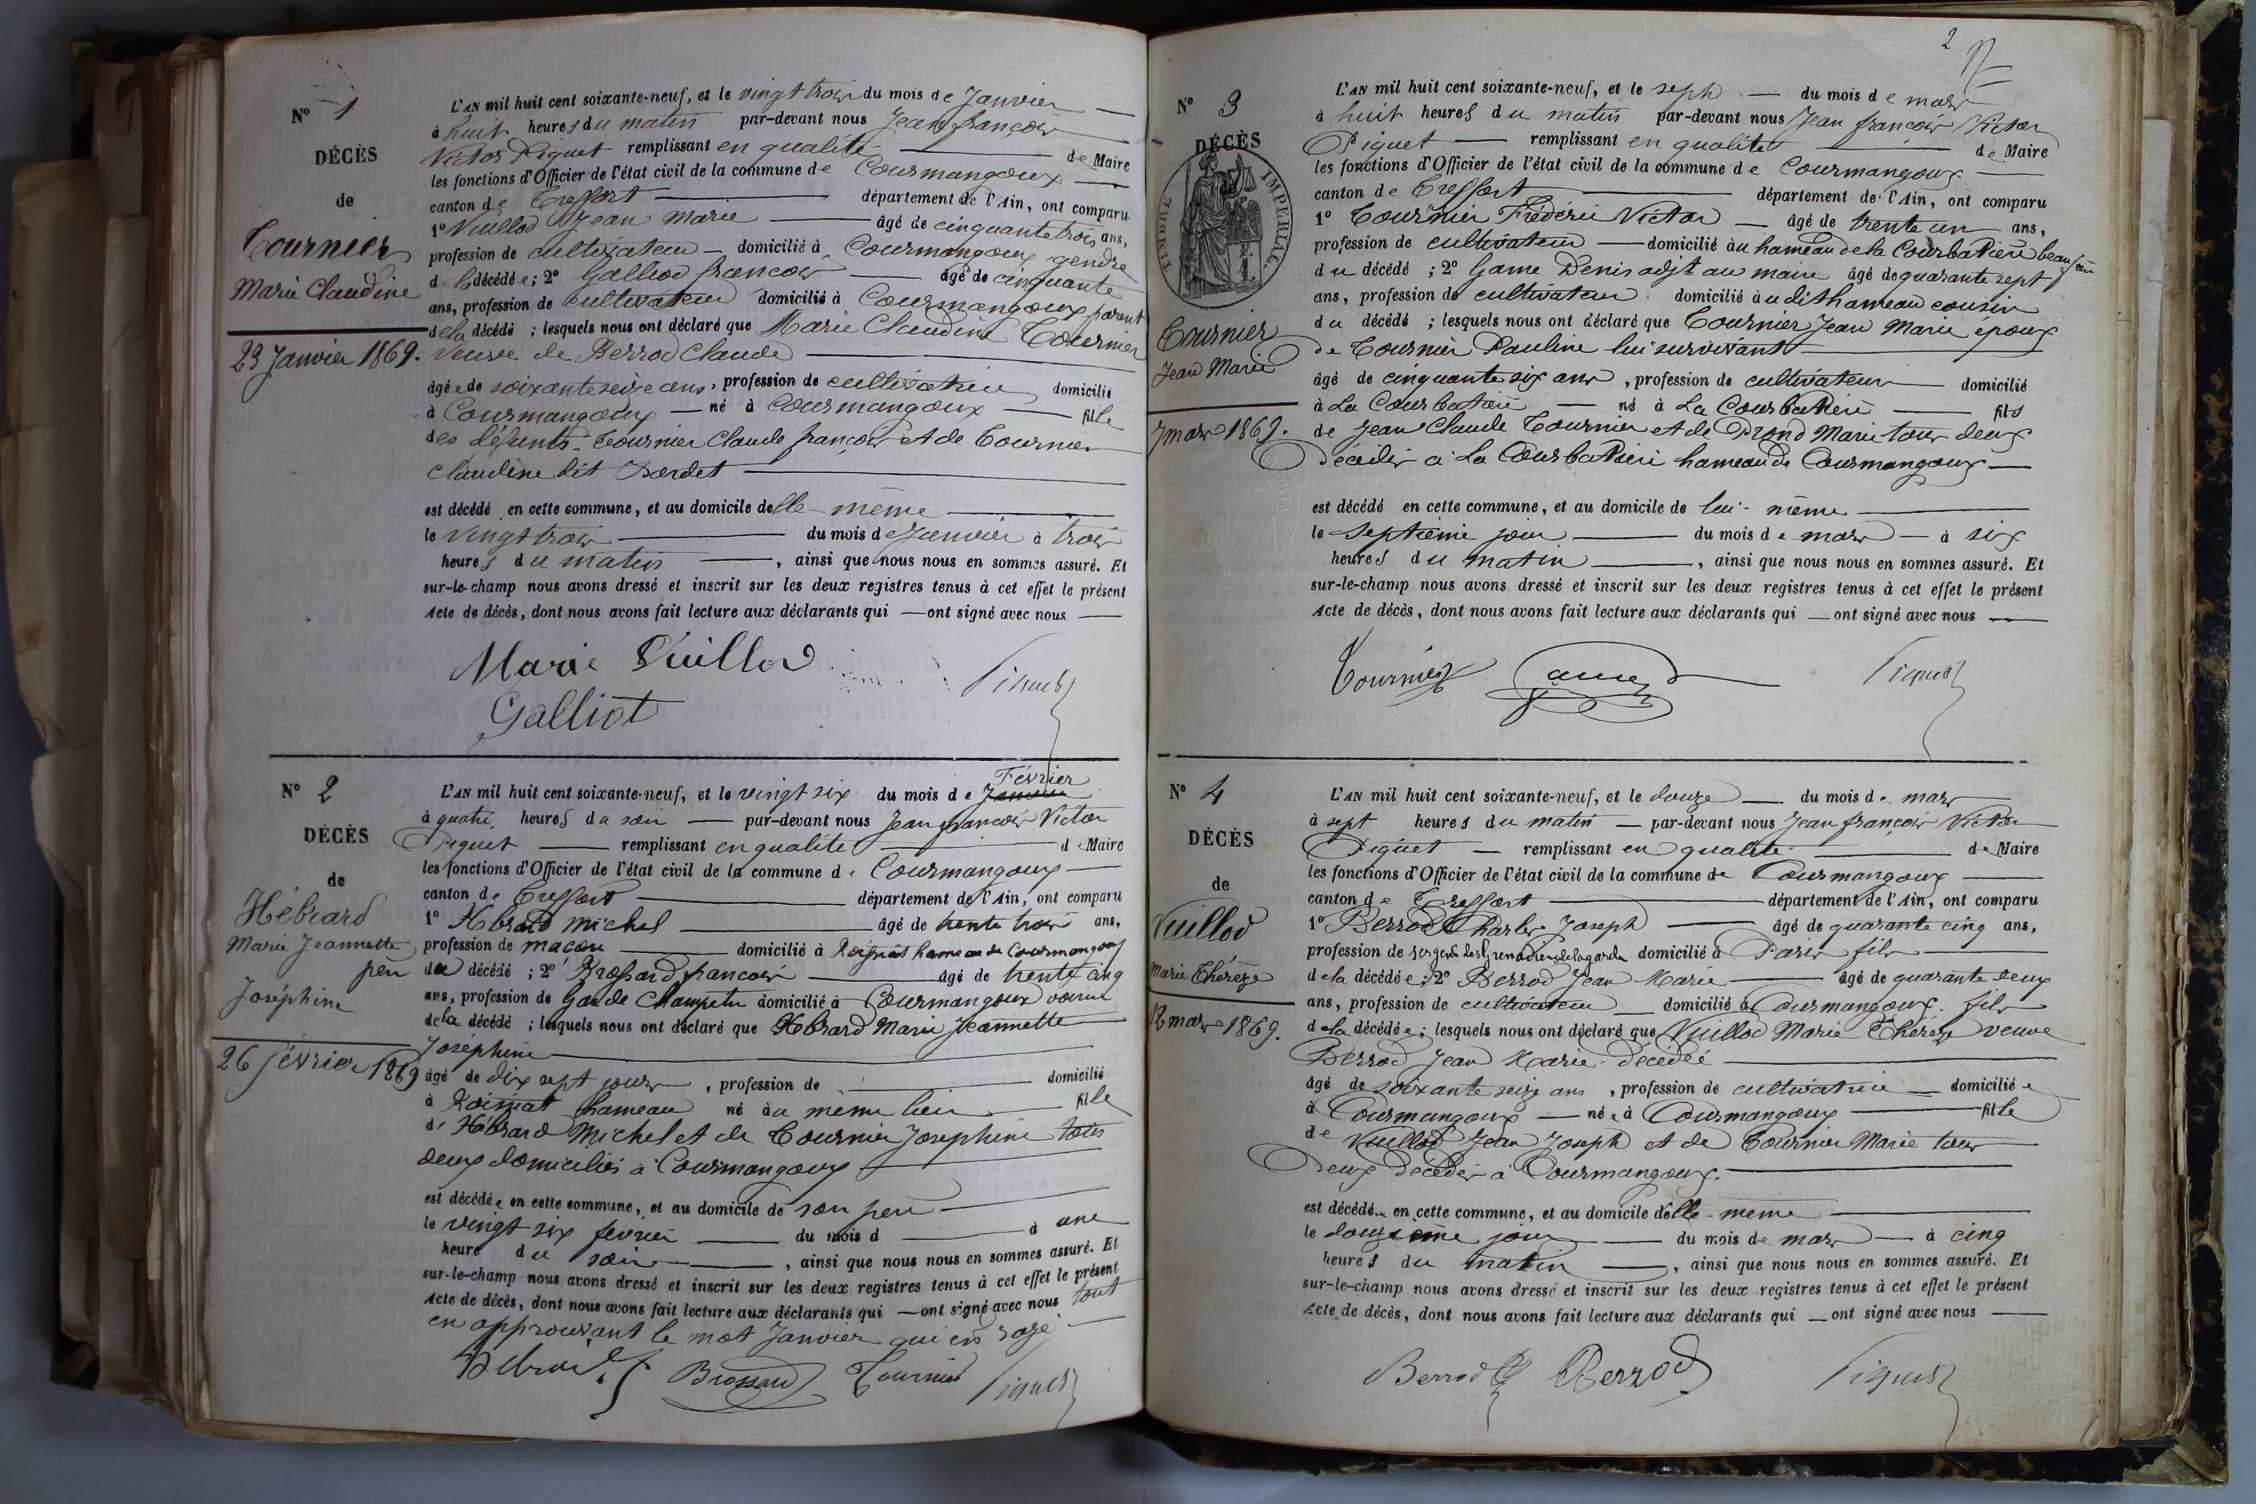 N° 1
DÉCÈS
de
Tournier
Marie Claudine
23 Janvier 1869.
L'AN mil huit cent soixante-neuf, et le vingt trois du mois de Janvier
à huit heures du matin par-devant nous Jean françois
Victor Piquet remplissant en qualité de Maire
les fonctions d'Officier de l'état civil de la commune de Courmangoux
canton de Treffort département de l'Ain, ont comparu
1° Vuillod Jean Marie âgé de cinquante trois ans,
profession de cultivateur domicilié à Courmangoux gendre
de la décédée; 2° Galliod françois âgé de cinquante
ans, profession de cultivateur domicilié à Courmangoux parent
de la décédé ; lesquels nous ont déclaré que Marie Claudine Tournier
veuve de Berrod Claude
âgée de soixante seize ans, profession de cultivatrice domicilié
à Courmangoux né à Courmangoux fille
des défunts Tournier Claude françois et de Tournier
Claudine dit Bordet
est décédé en cette commune, et au domicile delle-même
le vingt trois du mois de Janvier à trois
heures du matin, ainsi que nous nous en sommes assuré. Et
sur-le-champ nous avons dressé et inscrit sur les deux registres tenus à cet effet le présent
Acte de décès, dont nous avons fait lecture aux déclarants qui ont signé avec nous
Marie Vuillod
Piquet
Galliot
N° 2
DÉCÈS
de
Hébrard
Marie Jeannette
Joséphine
26 février 1869
L'AN mil huit cent soixante-neuf, et le vingt six du mois de Janvier Février
à quatre heures du soir par-devant nous Jean françois Victor
Piquet remplissant en qualité de Maire
les fonctions d'Officier de l'état civil de la commune de Courmangoux
canton de Treffort département de l'Ain, ont comparu
1° Hébrard Michel âgé de trente trois ans,
profession de maçon domicilié à Roissiat hameau de Courmangoux
père de la décédé ; 2° Brossard françois âgé de trente cinq
ans, profession de Garde Champetre domicilié à Courmangoux voisin
de la décédé ; lesquels nous ont déclaré que Hebrard Marie Jeannette
Joséphine
âgé de dix sept jours, profession de domicilié
à Roissiat hameau né au même lieu fille
de Hébrard Michel et de Tournier Joséphine tous
deux domiciliés à Courmangoux
est décédée en cette commune, et au domicile de son père
le vingt six février du mois d à une
heure du soir, ainsi que nous nous en sommes assuré. Et
sur-le-champ nous avons dressé et inscrit sur les deux registres tenus à cet effet le présent
Acte de décès, dont nous avons fait lecture aux déclarants qui ont signé avec nous tout
en approuvant le mot Janvier qui est rayé
Hebrard Brossard Tournier Piquet
2
N° 3
DÉCÈS
TIMBRE IMPÉRIAL
Tournier
Jean Marie
7 mars 1869.
L'AN mil huit cent soixante-neuf, et le sept du mois de mars
à huit heures du matin par-devant nous Jean françois Victor
Piquet remplissant en qualité de Maire
les fonctions d'Officier de l'état civil de la commune de Courmangoux
canton de Treffort département de l'Ain, ont comparu
1° Tournier Frédéric Victor âgé de trente un ans,
profession de cultivateur domicilié au hameau de la Courbatière beau frère
du décédé ; 2° Game Denis adjt au maire âgé de quarante sept
ans, profession de cultivateur domicilié au dit hameau cousin
du décédé ; lesquels nous ont déclaré que Tournier Jean Marie époux
de Tournier Pauline lui survivant
âgé de cinquante six ans, profession de cultivateur domicilié
à La Courbatière né à La Courbatière fils
de Jean Claude Tournier et de Prond Marie tous deux
décédés à La Courbatière hameau de Courmangoux
est décédé en cette commune, et au domicile de lui-même
le septième jour du mois de mars à six
heures du matin, ainsi que nous nous en sommes assuré. Et
sur-le-champ nous avons dressé et inscrit sur les deux registres tenus à cet effet le présent
Acte de décès, dont nous avons fait lecture aux déclarants qui ont signé avec nous
Tournier Game D Piquet
N° 4
DÉCÈS
de
Vuillod
Marie Thérèze
12 mars 1869.
L'AN mil huit cent soixante-neuf, et le douze du mois de mars
à sept heures du matin par-devant nous Jean françois Victor
Piquet remplissant en qualité de Maire
les fonctions d'Officier de l'état civil de la commune de Courmangoux
canton de Treffort département de l'Ain, ont comparu
1° Berrod Charles Joseph âgé de quarante cinq ans,
profession de sergent des Grenadiers de la garde domicilié à Paris fils
de la décédée; 2° Berrod Jean Marie âgé de quarante deux
ans, profession de cultivateur domicilié à Courmangoux fils
de la décédée; lesquels nous ont déclaré que Vuillod Marie Thérèze veuve
Berrod Jean Marie décédée
âgé de soixante seize ans, profession de cultivatrice domiciliée
à Courmangoux née à Courmangoux fille
de Vuillod Jean Joseph et de Tournier Marie tous
deux décédés à Courmangoux.
est décédée en cette commune, et au domicile delle-même
le douzième jour du mois de mars à cinq
heures du matin, ainsi que nous nous en sommes assuré. Et
sur-le-champ nous avons dressé et inscrit sur les deux registres tenus à cet effet le présent
Acte de décès, dont nous avons fait lecture aux déclarants qui ont signé avec nous
Berrod Berrod Piquet